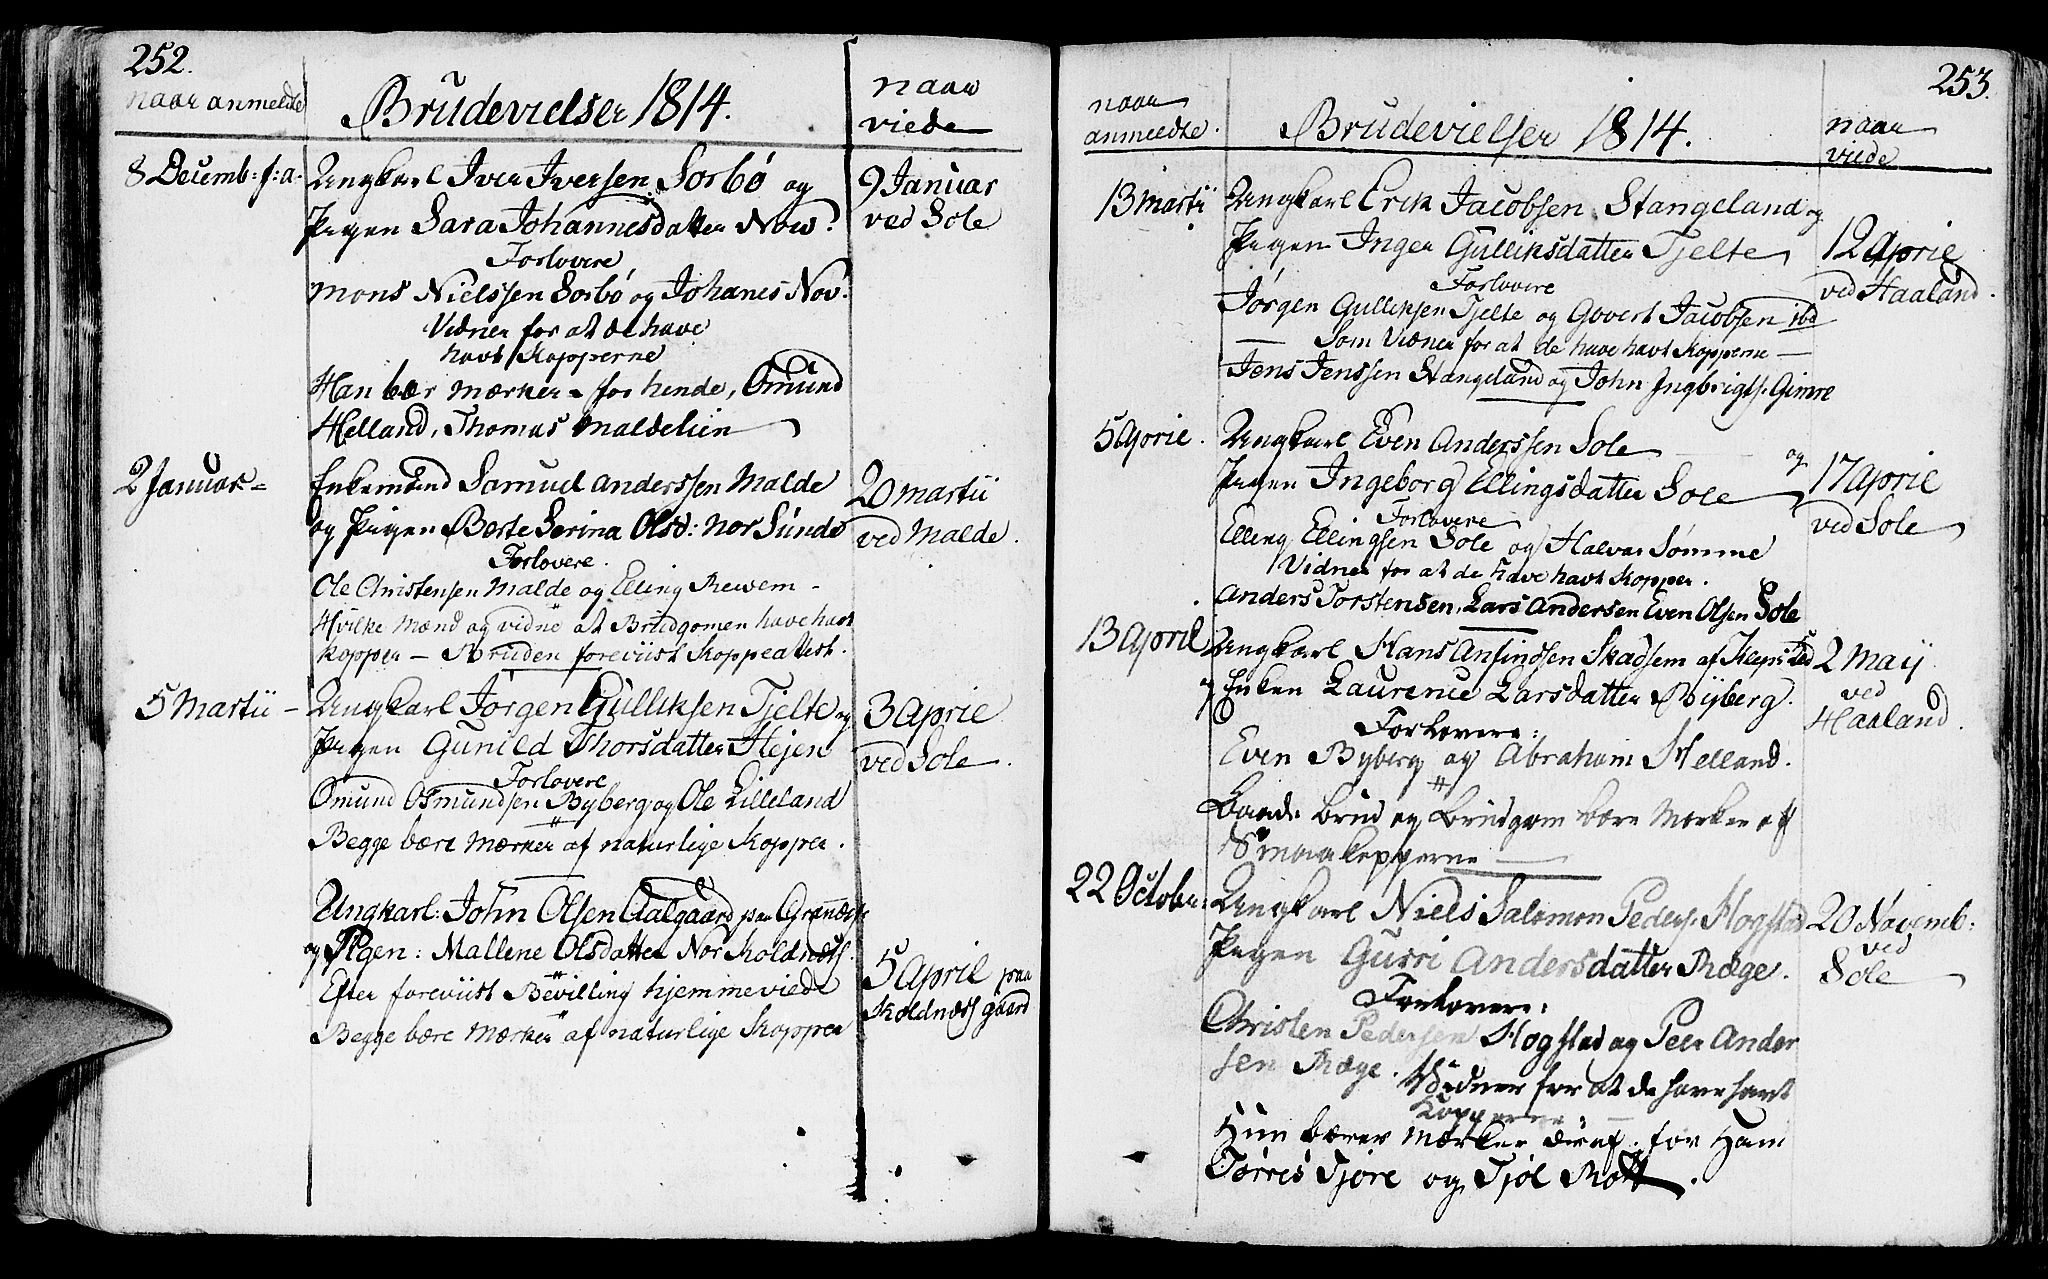 252.
naar anmeldte
Brudevielser 1814.
naar
viede
8 Decemb: f: a.
Ungkarl Iver Iversen Sorbø og
Pigen Sara Johannesdatter Nov:
Forlovere
Mons Nielssen Sorbø og Johanes Nov:
Vidner for at de have
havt Kopperne
Han bær mærker – for hende, Omund
Helland, Thomas Maldelien
9 Januar
ved Sole
2 Januar –
Enkemand Samuel Anderssen Malde
og Pigen Berte Serina Olsd: Nor Sunde
Forlovere.
Ole Christensen Malde og Elling Revem –
Hvilke Mænd og vidne at Brudgomen have havt
kopper – Bruden foreviist Koppeattest.
20 Martii
ved Malde.
5 Martii –
Ungkarl Jørgen Gulliksen Tjelte og
Pigen Gunild Thorsdatter Hejen
Forlovere
Omund Osmundsen Byberg og Ole Lilleland
Begge bære Mærker af naturlige Kopper.
3 April
ved Sole.
Ungkarl: John Olsen Aalgaard paa
og Pigen: Mallene Olsdatter Nor Koldnæs.
Efter foreviist Bevilling hjemmeviede
Begge bære Mærker af naturlige Kopper
5 April paa
Koldnæs gaard
253.
naar
anmeldte.
Brudevielser 1814.
naar
viede
13 Martii
Ungkarl Erik Jacobsen Stangeland og
Pigen Inger Gulliksdatter Tjelte
Forlovere
Jørgen Gulliksen Tjelte og Govert Jacobsen ibd
– Som Vidner for at de have havt Kopperne –
Jens Jenssen Stangeland og John Ingbrigts. Gimre
12 April
ved Haaland.
5 April.
Ungkarl Even Anderssen Sole og
Pigen Ingeborg Ellingsdatter Sole
Forlovere
Elling Ellingsen Sole og Halvar Sømme
Vidner for at de have havt Kopper.
Anders Torstensen, Lars Andersen Even Olsen Sole
17 April
ved Sole
13 April
Ungkarl Hans Ansindsen Skadsem af Kleps
og Enken Laurence Larsdatter Byberg.
Forlovere:
Even Byberg og Abraham Helland.
Baade brud og Brudgom bære Mærker af
Smaakopperne
2 Maij
ved
Haaland.
22 October
Ungkarl Niels Salomon Peders. Hogstad
Pigen Gurri Andersdatter Ræge.
Forlovere:
Christen Pedersen Hogstad og Peer Ander
sen Ræge. Vidner for at de have havt
Kopperne.
Hun bærer Mærker deraf. for Ham
Tørres Tjore og Tjøl Rott.
20 Novemb:
ved
Sole